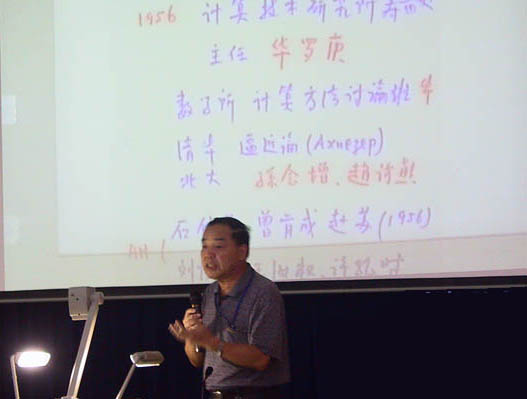 1956 计算技术研究所筹
主任 华罗庚
数学所 计算方法讨论班 华
清华 逼近论 (Ахиезер)
北大 孙念增、赵访熊
石 曾肯成 赴苏 (1956)